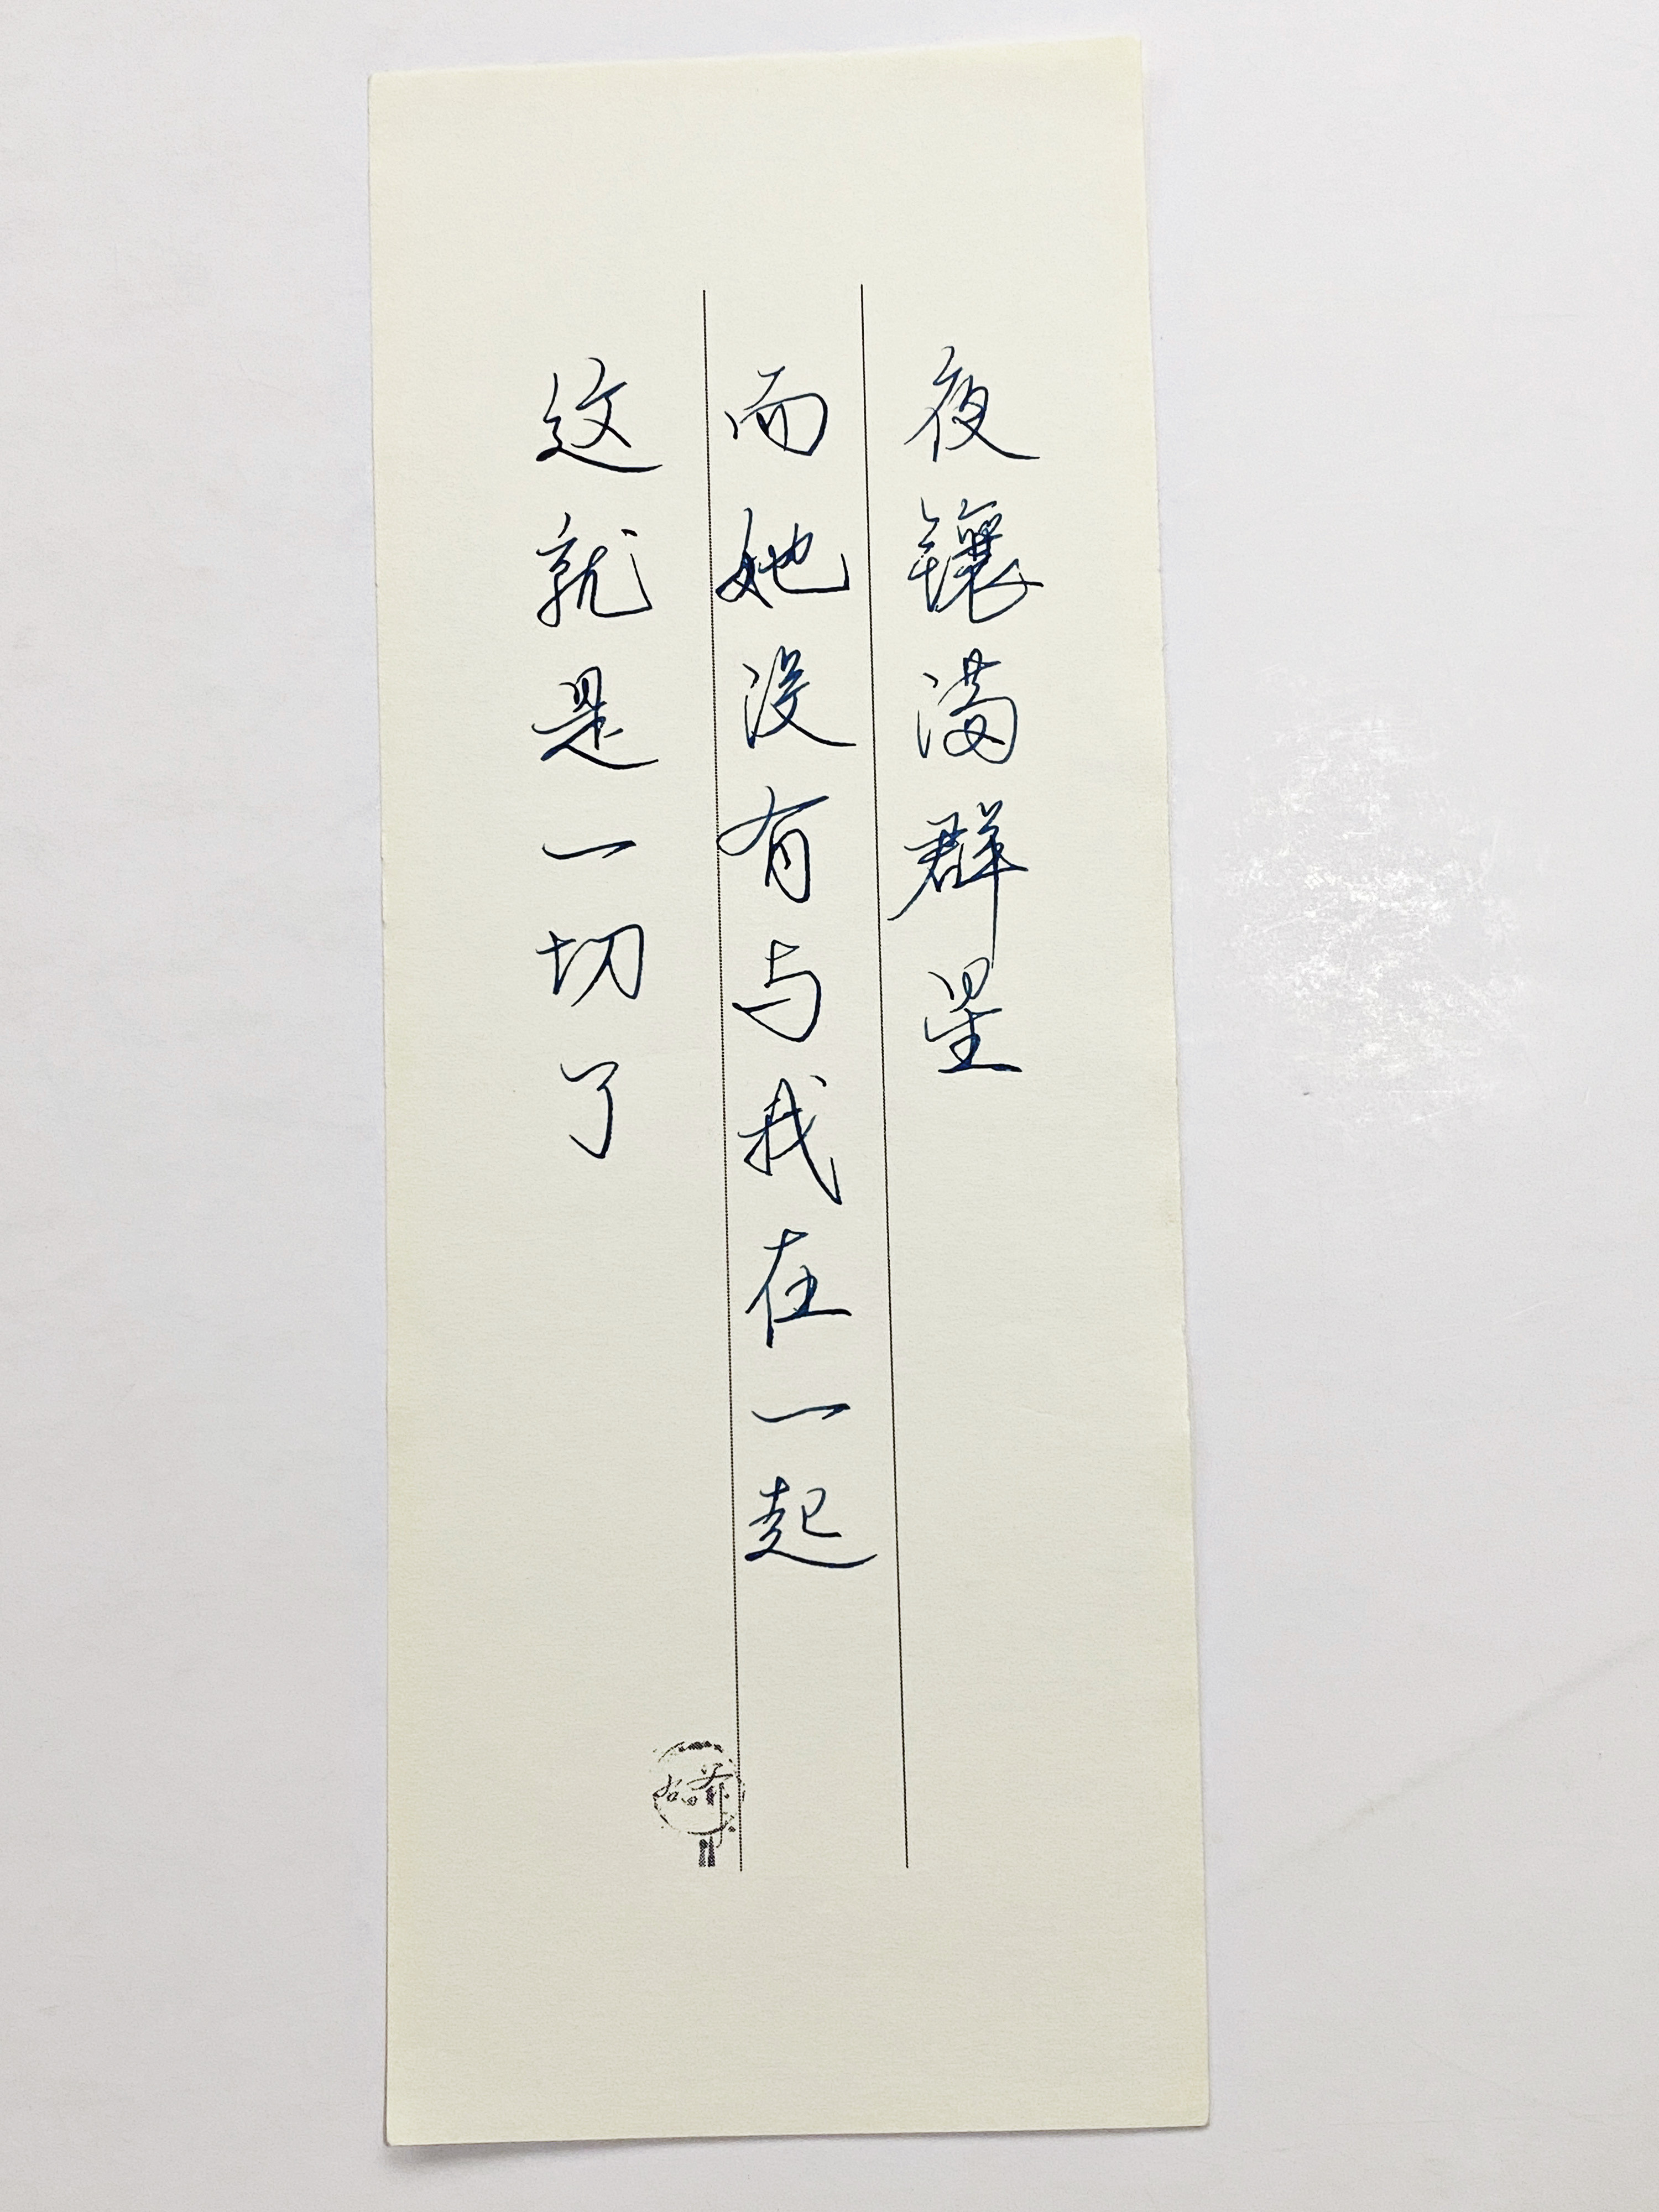 夜镶满群星
而她没有与我在一起
这就是一切了